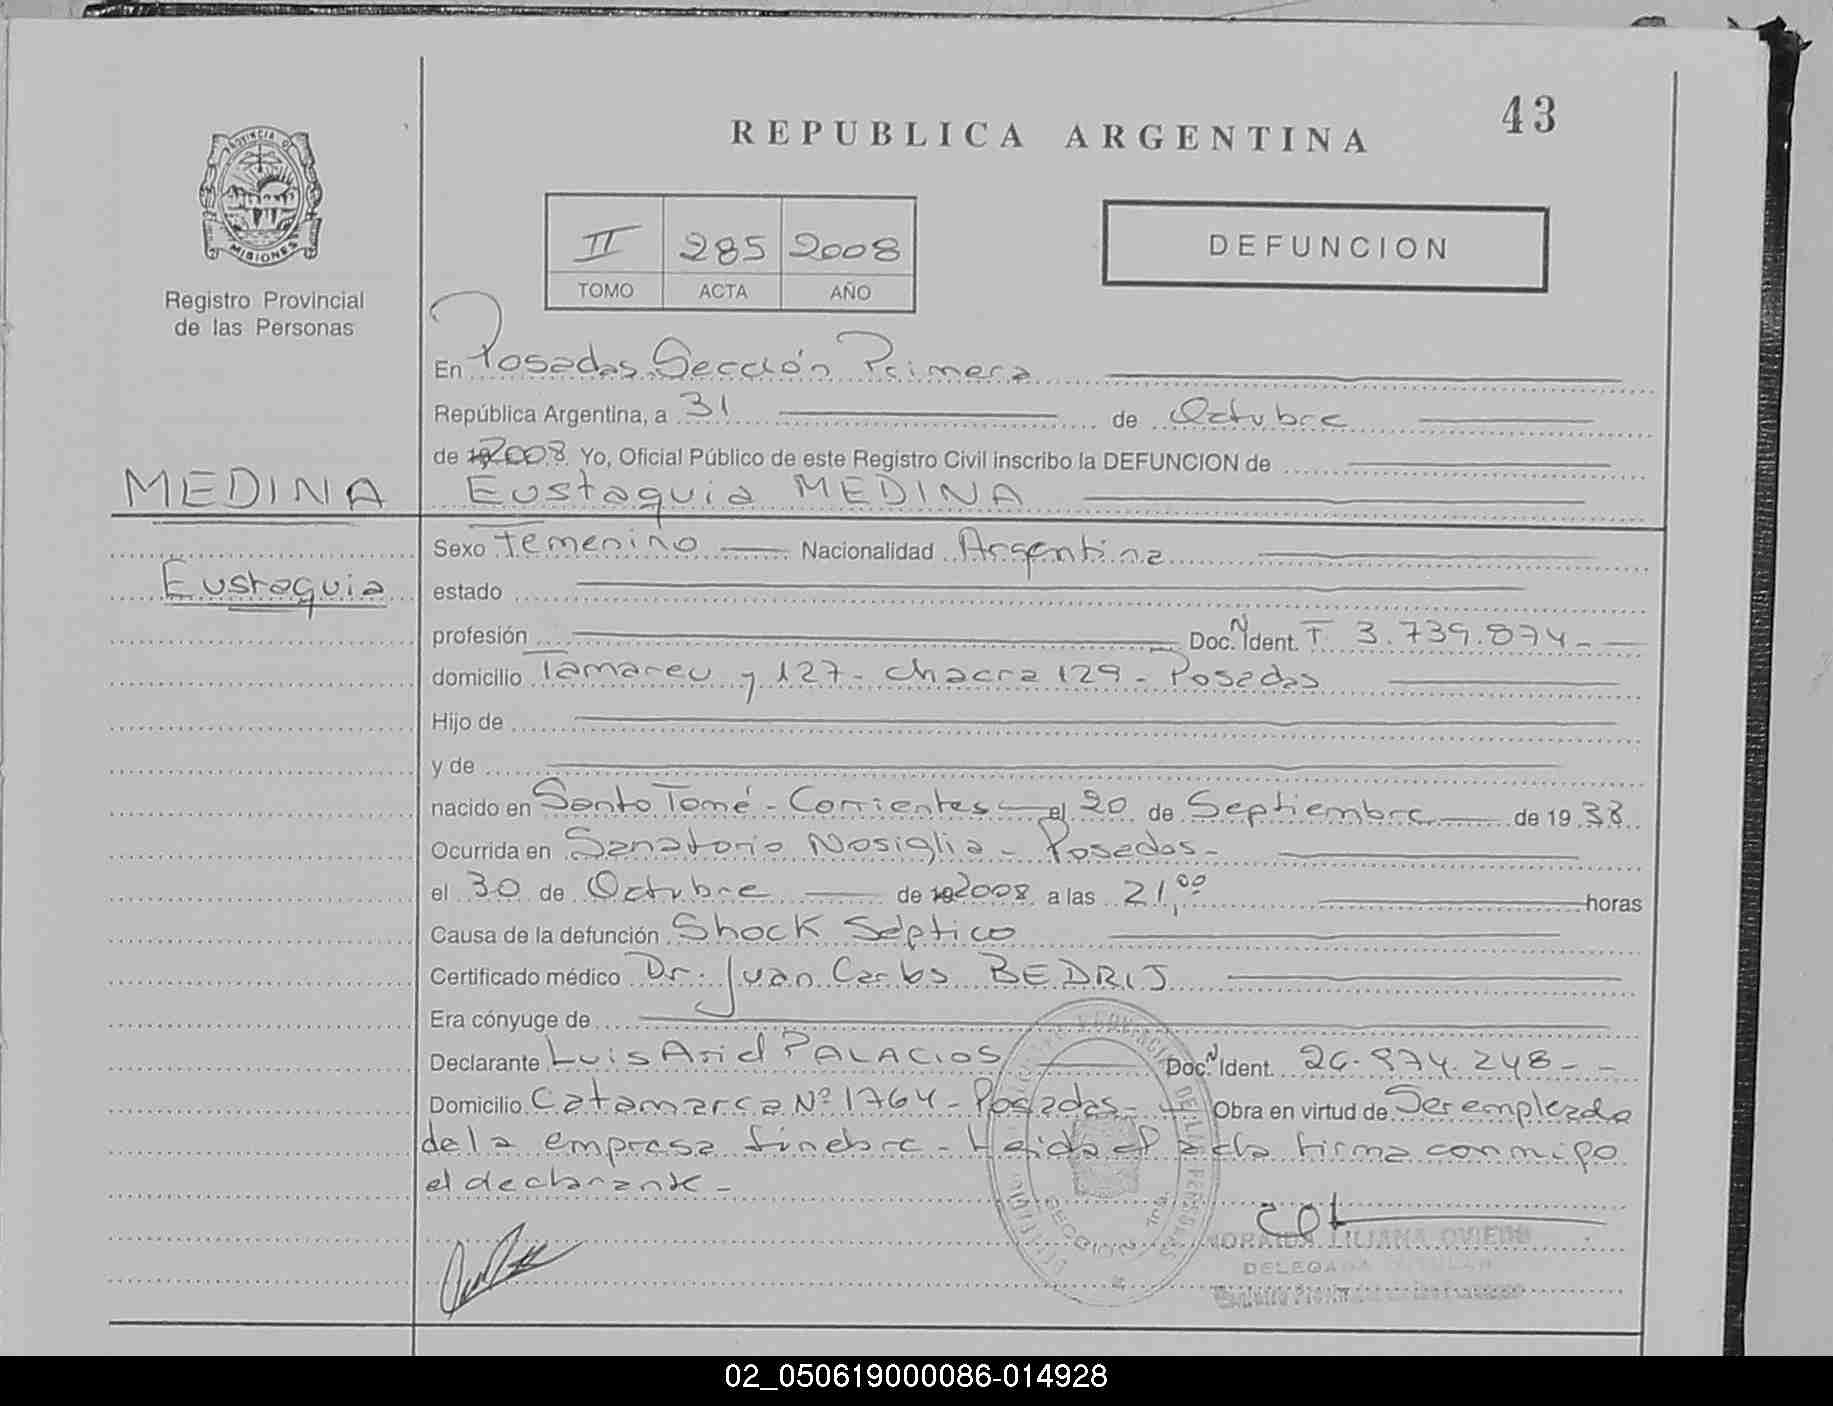 43
REPUBLICA ARGENTINA
PROVINCIA DE
MISIONES
Registro Provincial
de las Personas
II 285 2008
TOMO ACTA AÑO
DEFUNCION
En Posadas Sección Primera
República Argentina, a 31 de Octubre
de 2008 Yo, Oficial Público de este Registro Civil inscribo la DEFUNCION de
MEDINA Eustaquia MEDINA
Sexo Femenino Nacionalidad Argentina
Eustaquia estado
profesión Doc. N Ident. T. 3.739.874-
domicilio Tamareu y 127- Chacra 129- Posadas
Hijo de
y de
nacido en Santo Tomé - Corrientes el 20 de Septiembre de 1938
Ocurrida en Sanatorio Nosiglia - Posadas-
el 30 de Octubre de 2008 a las 21,00 horas
Causa de la defunción Shock Séptico
Certificado médico Dr. Juan Carlos BEDRIJ
Era cónyuge de
Declarante Luis Ariel PALACIOS Doc. N Ident. 26.974.248-
Domicilio Catamarca Nº 1764 - Posadas- Obra en virtud de Ser empleado
de la empresa fúnebre - Leida el acta firma conmigo
el declarante -
SECCION 1ra.
LILIANA OVIEDO
DELEGADA TITULAR
02_050619000086-014928